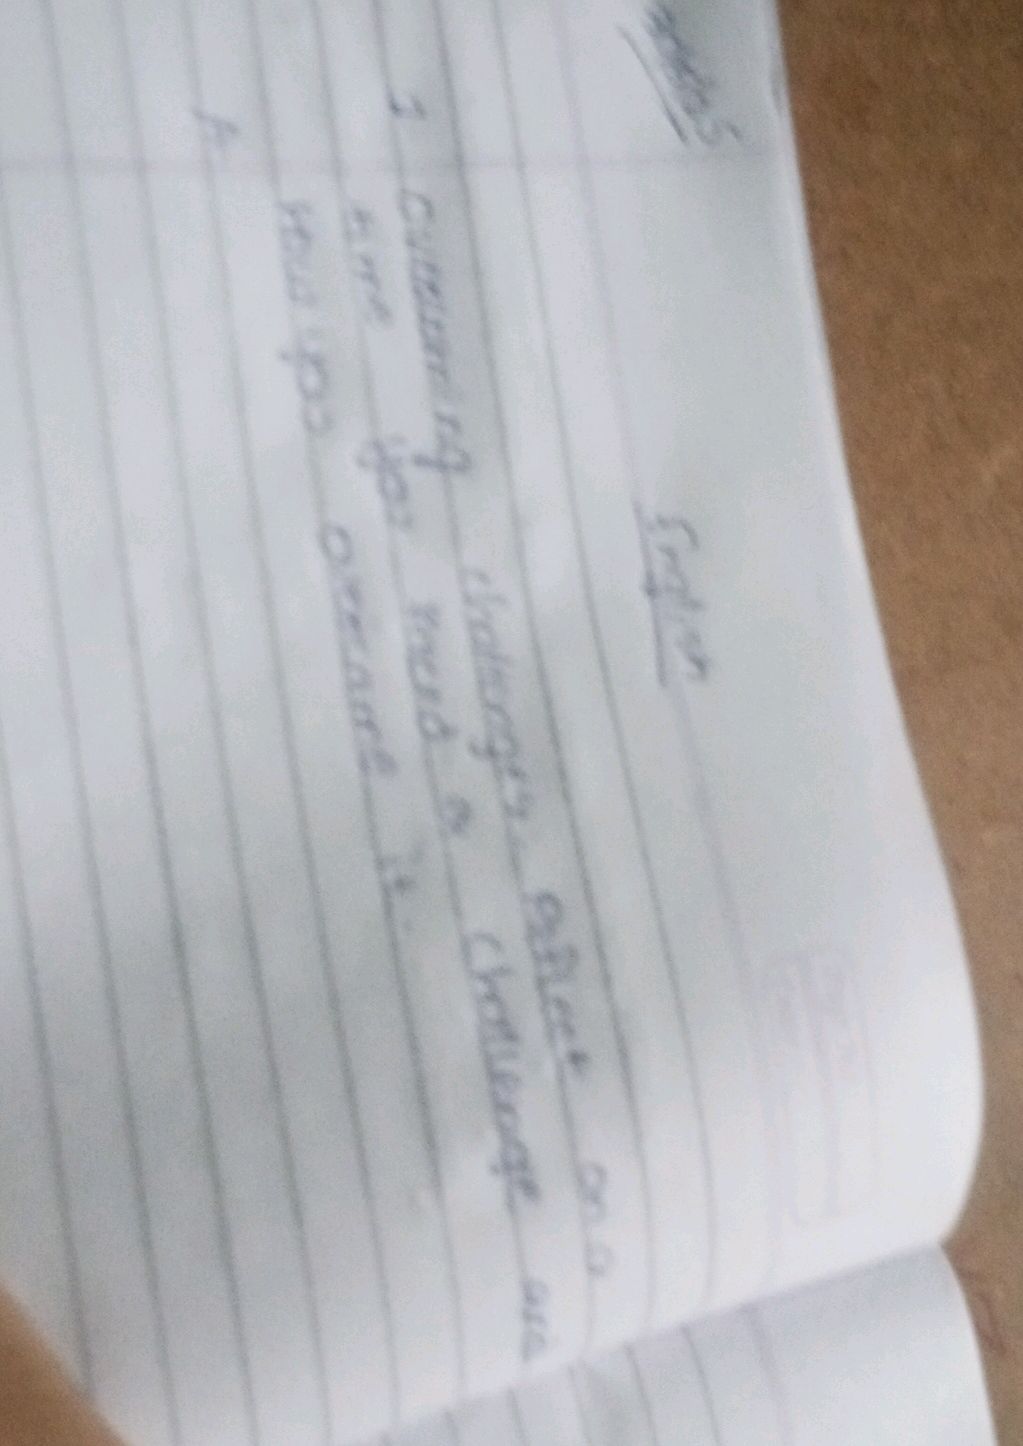 English
1 Overcoming challenges. reflect on a
time you faced a challenge and
how you overcame it.
A.